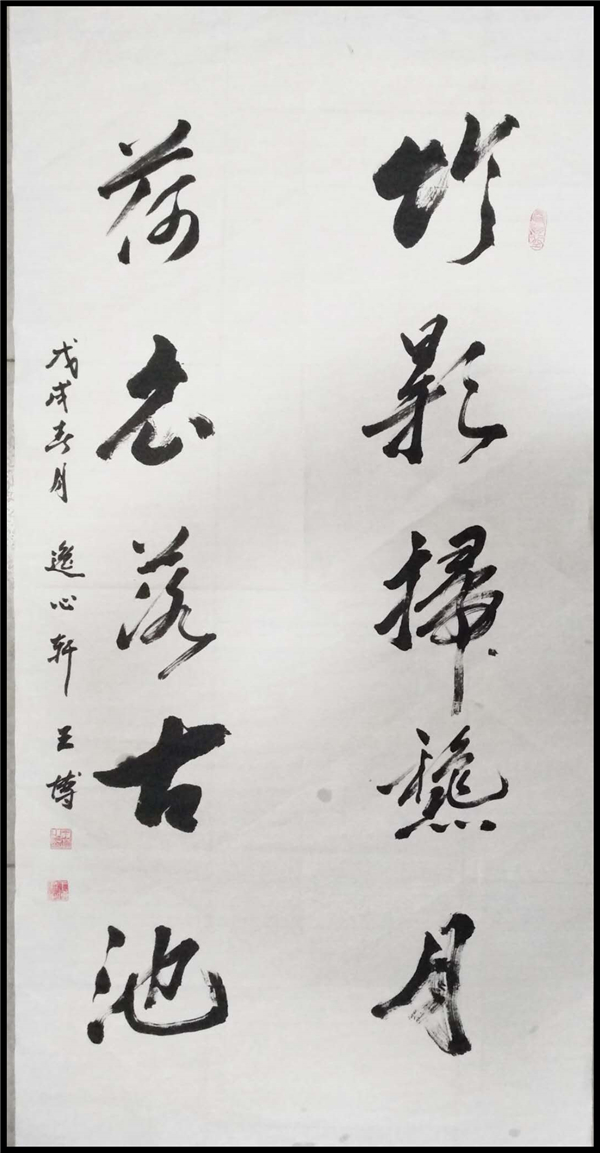 竹影掃龝月
荷衣落古池
戊戌春月 逸心轩 王博